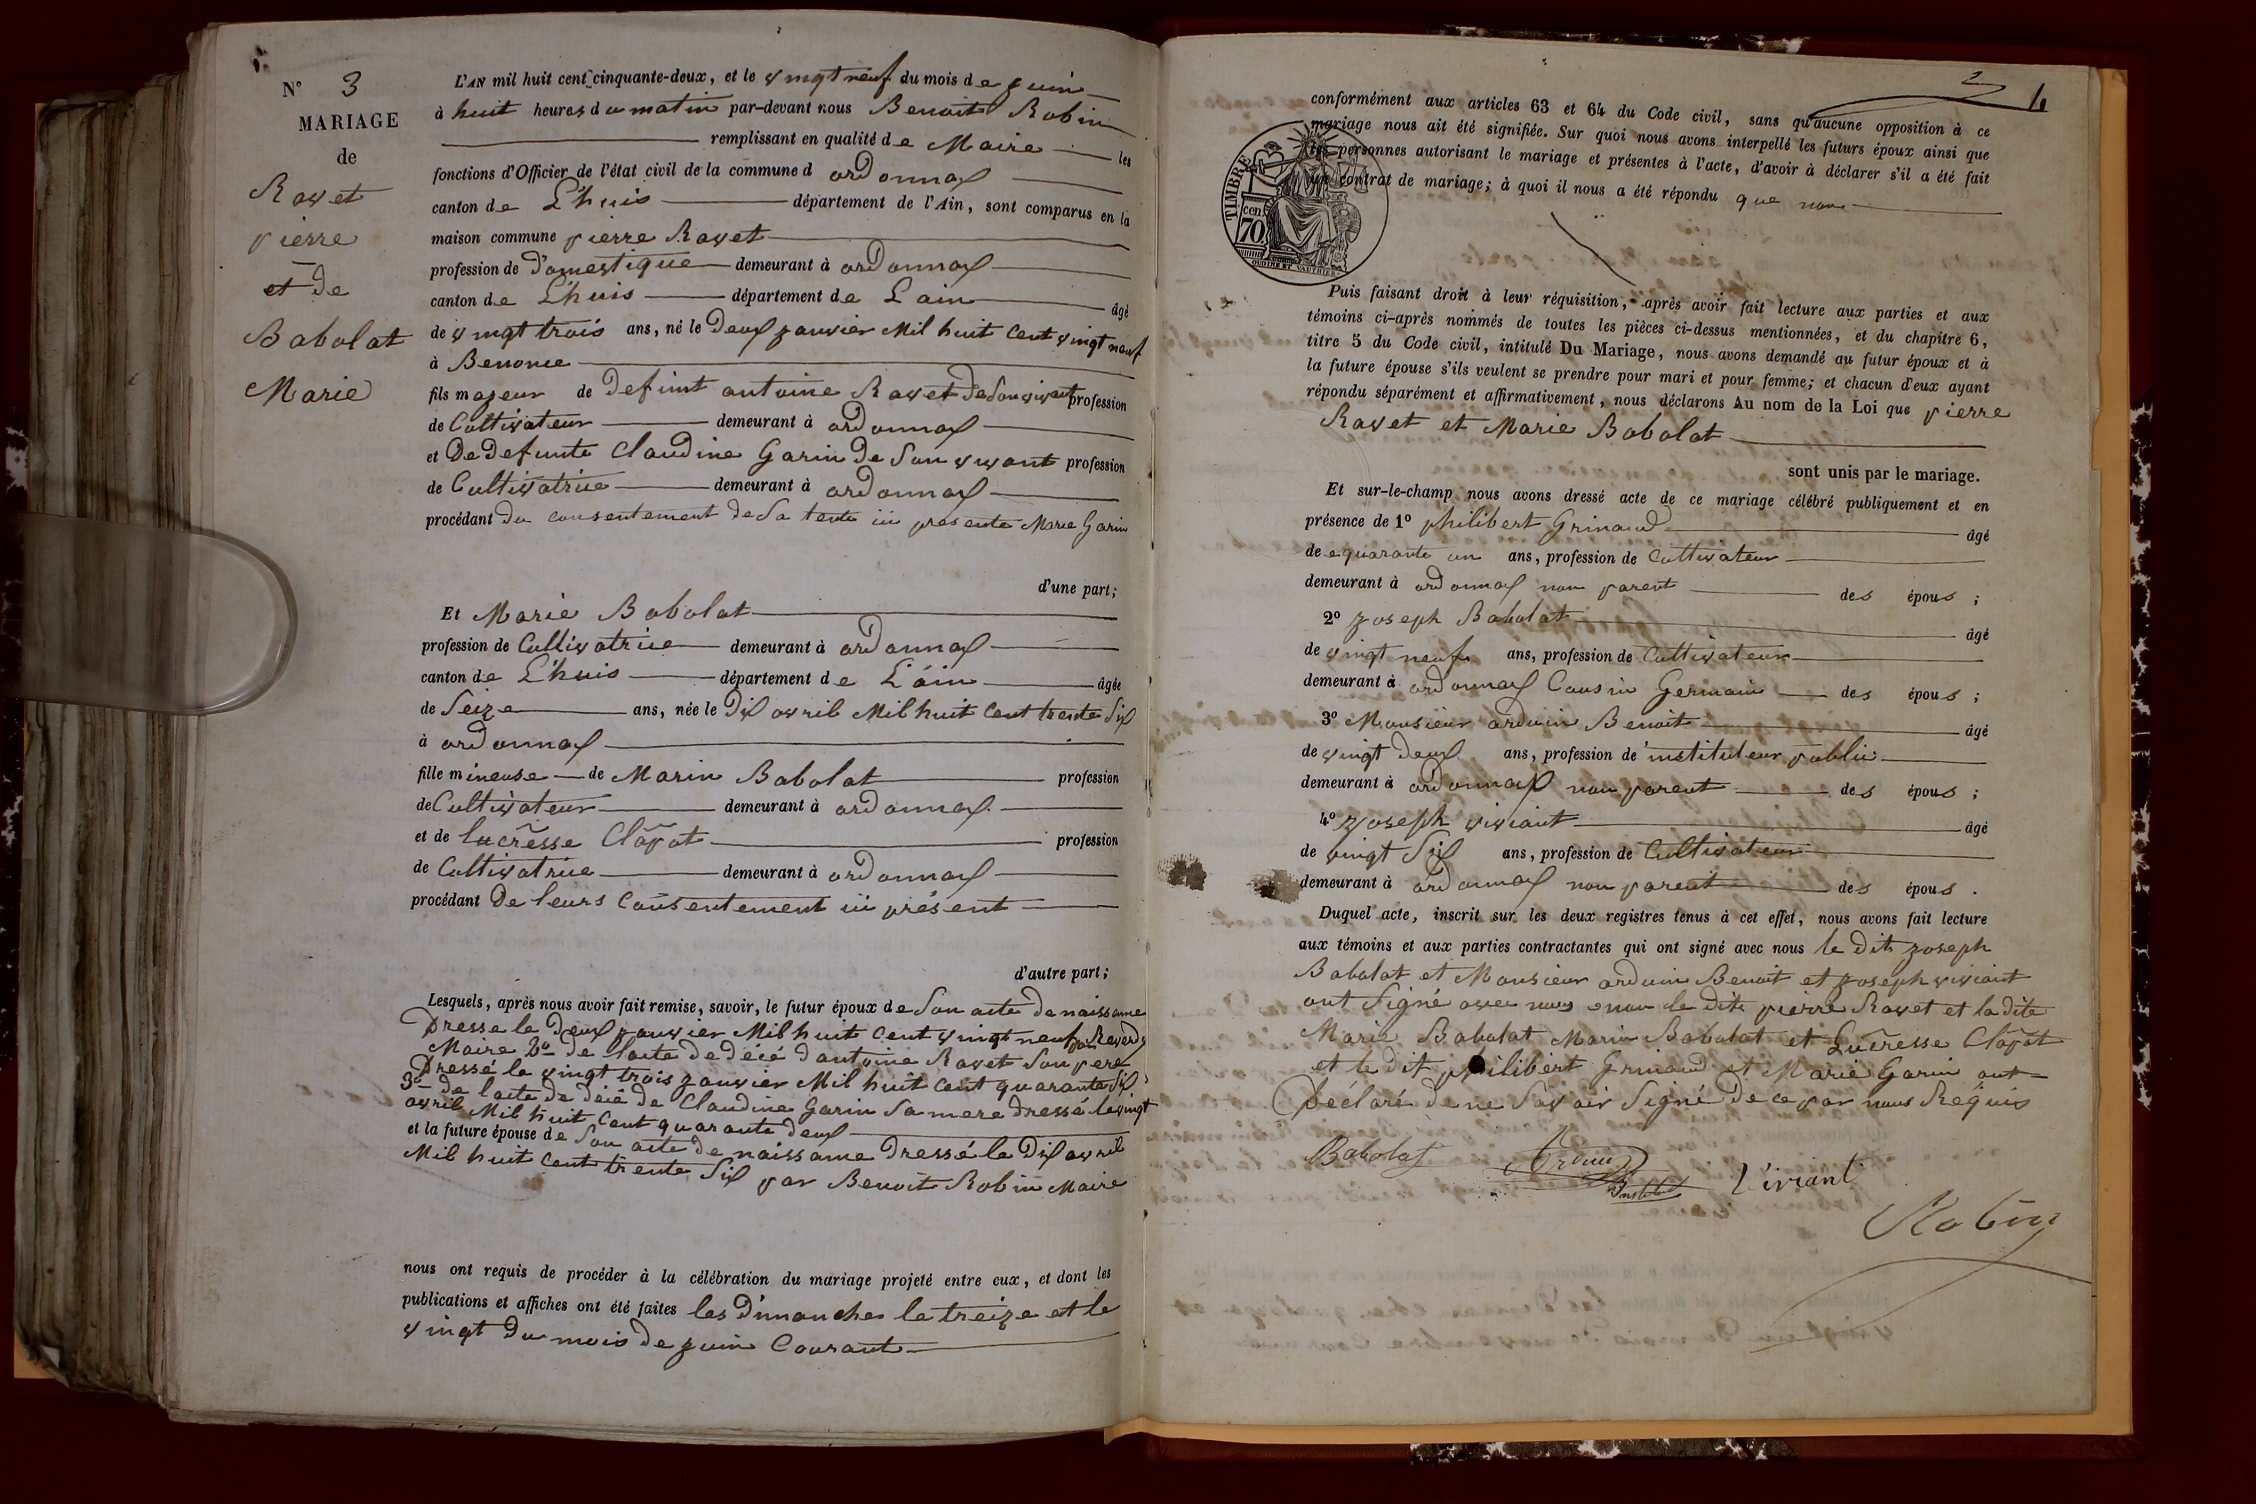 N° 3
MARIAGE
de
Ravet
pierre
et de
Babolat
Marie
L'AN mil huit cent cinquante-deux, et le vingt neuf du mois de juin
à huit heures du matin par-devant nous Benoit Robin
remplissant en qualité de Maire les
fonctions d'Officier de l'état civil de la commune d ordonnax
canton de L'huis département de l'Ain, sont comparus en la
maison commune pierre Ravet
profession de Domestique demeurant à ordonnax
canton de L'huis département de L'ain âgé
de vingt trois ans, né le Deux janvier Mil huit cent vingt neuf
à Benonce
fils majeur de defunt antoine Ravet De Son vivant profession
de Cultivateur demeurant à ordonnax
et De defunte Claudine Garin De Son vivant profession
de Cultivatrice demeurant à ordonnax
procédant du consentement de Sa tente ici presente Marie Garin
d'une part;
Et Marie Babolat
profession de Cultivatrice demeurant à ordonnax
canton de L'huis département de L'ain âgée
de Seize ans, née le Dix avril Mil huit cent trente Six
à ordonnax
fille mineuse de Marin Babolat profession
de Cultivateur demeurant à ordonnax
et de lucresse Clapot profession
de Cultivatrice demeurant à ordonnax
procédant De leurs Consentement ici présent
d'autre part;
Lesquels, après nous avoir fait remise, savoir, le futur époux de Son acte De naissance
Dresse le Deux janvier Mil huit cent vingt neuf par
Maire 2° de l'acte de décé d'antoine Ravet Son pere
Dressé le vingt trois janvier Mil huit cent quarante Six
3° de l'acte de décé de Claudine Garin Sa mere dressé le vingt
avril Mil huit Cent quarante deux
et la future épouse de Son acte de naissance Dressé le Dix avril
Mil huit cent trente Six par Benoit Robin Maire
nous ont requis de procéder à la célébration du mariage projeté entre eux, et dont les
publications et affiches ont été faites les Dimanches le treize et le
vingt Du mois de juin Courant
conformément aux articles 63 et 64 du Code civil, sans qu'aucune opposition à ce
mariage nous ait été signifiée. Sur quoi nous avons interpellé les futurs époux ainsi que
les personnes autorisant le mariage et présentes à l'acte, d'avoir à déclarer s'il a été fait
un contrat de mariage; à quoi il nous a été répondu que non
TIMBRE
70 cen
OUDINE ET VAUTHIER
Puis faisant droit à leur réquisition, après avoir fait lecture aux parties et aux
témoins ci-après nommés de toutes les pièces ci-dessus mentionnées, et du chapitre 6,
titre 5 du Code civil, intitulé Du Mariage, nous avons demandé au futur époux et à
la future épouse s'ils veulent se prendre pour mari et pour femme; et chacun d'eux ayant
répondu séparément et affirmativement, nous déclarons Au nom de la Loi que pierre
Ravet et Marie Babolat
sont unis par le mariage.
Et sur-le-champ nous avons dressé acte de ce mariage célébré publiquement et en
présence de 1° philibert Grinand âgé
de quarante un ans, profession de Cultivateur
demeurant à ordonnax non parent des épous ;
2° joseph Babolat âgé
de vingt neuf ans, profession de Cultivateur
demeurant à ordonnax Cousin Germain des épous ;
3° Monsieur arduin Benoit âgé
de vingt deux ans, profession de instituteur public
demeurant à ordonnax non parent des épous ;
4° joseph viviant âgé
de vingt Six ans, profession de Cultivateur
demeurant à ordonnax non parent des épous .
Duquel acte, inscrit sur les deux registres tenus à cet effet, nous avons fait lecture
aux témoins et aux parties contractantes qui ont signé avec nous le dit joseph
Babolat et Monsieur arduin Benoit et joseph viviant
ont Signé avec nous non le dit pierre Ravet et la dite
Marie Babolat Marin Babolat et Lucresse Clapot
et le dit philibert Grinand et Marie Garin ont
Déclaré de ne Savoir Signé De ce par nous Requis
Babolat
Viviant
Robin